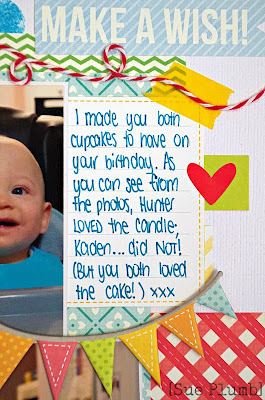 MAKE A WISH!
I made you both
cupcakes to have on
your birthday. As
you can see from
the photos, Hunter
LOVED the candle;
Kaiden... did NOT!
(But you both loved
the cake!) xxx
{Sue Plumb}